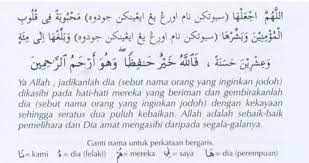 اَللّٰهُمَّ اجْعَلْهَا (سبوتكن نام اورڠ يڠ ايڠينكن جودوه) مَحْبُوْبَةً فِى قُلُوْبِ
الْمُؤْمِنِيْنَ وَبَشِّرْهَا (سبوتكن نام اورڠ يڠ ايڠينكن جودوه) وَبَلِّغْهَا اِلٰى مِئَةٍ
وَعِشْرِيْنَ حَسَنَةً ، فَاللّٰهُ خَيْرٌ حٰفِظًا وَهُوَ اَرْحَمُ الرّٰحِمِيْنَ
Ya Allah , jadikanlah dia (sebut nama orang yang inginkan jodoh)
dikasihi pada hati-hati mereka yang beriman dan gembirakanlah
dia (sebut nama orang yang inginkan jodoh) dengan kekayaan
sehingga seratus dua puluh kebaikan. Allah adalah sebaik-baik
pemelihara dan Dia amat mengasihi daripada segala-galanya.
Ganti nama untuk perkataan bergaris.
ها = dia (perempuan) ي = saya هم = mereka ه = dia (lelaki)